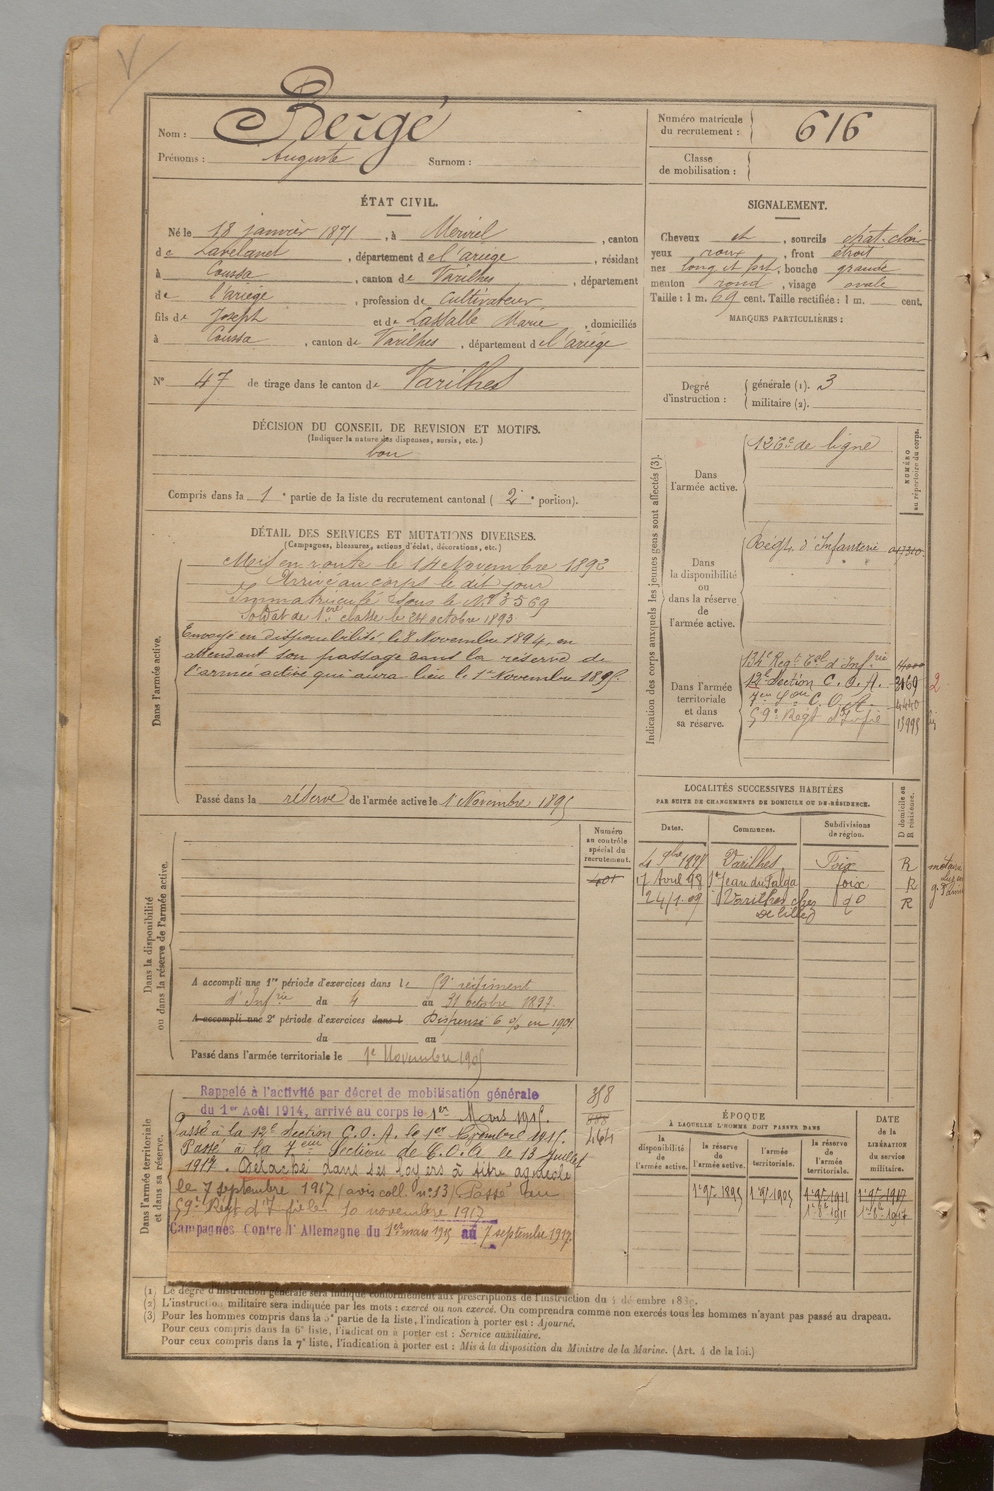 Nom : Bergé
Prénoms : Auguste Surnom :
Numéro matricule du recrutement : 616
Classe de mobilisation :
ÉTAT CIVIL.
Né le 18 janvier 1871, à Merviel, canton
de Lavelanet, département de l'ariège, résidant
à Coussa, canton de Varilhes, département
de l'ariège, profession de Cultivateur
fils de Joseph et de Lassalle Marie, domiciliés
à Coussa, canton de Varilhes, département de l'ariége
N° 47 de tirage dans le canton de Varilhes
SIGNALEMENT.
Cheveux et, sourcils chat. clair
yeux roux, front étroit
nez long et fort, bouche grande
menton rond, visage ovale
Taille : 1 m. 69 cent. Taille rectifiée : 1 m. cent.
MARQUES PARTICULIÈRES :
Degré d'instruction : générale (1). 3
militaire (2).
DÉCISION DU CONSEIL DE REVISION ET MOTIFS.
(Indiquer la nature des dispenses, sursis, etc.)
bon
Compris dans la 1e partie de la liste du recrutement cantonal ( 2e portion).
DÉTAIL DES SERVICES ET MUTATIONS DIVERSES.
(Campagnes, blessures, actions d'éclat, décorations, etc.)
Dans l'armée active.
Mis en route le 14 Novembre 1892
Arrivé au corps le dit jour
Immatriculé sous le N° 3569
Soldat de 1ère classe le 24 octobre 1893.
Envoyé en disponibilité le 8 Novembre 1894, en
attendant son passage dans la réserve de
l'armée active qui aura lieu le 1er Novembre 1895.
Passé dans la réserve de l'armée active le 1er Novembre 1895
Indication des corps auxquels les jeunes gens sont affectés (3).
NUMÉRO au répertoire du corps.
Dans l'armée active.
126e de ligne
Dans la disponibilité ou dans la réserve de l'armée active.
Régt. d'Infanterie
Dans l'armée territoriale et dans sa réserve.
134e Régt Tal d'Infrie
12e Section C. O. A. 3169 2
7eme Son C. O. A. 4440
59e Régt d'Infie 13995 bis
LOCALITÉS SUCCESSIVES HABITÉES
PAR SUITE DE CHANGEMENTS DE DOMICILE OU DE RÉSIDENCE.
Dates. Communes. Subdivisions de région. D domicile ou R résidence.
Varilhes Foix R
17 Avril 98 St Jean du Falga foix R
24/1.09 Varilhes chez do R
De Lilled
Dans la disponibilité ou dans la réserve de l'armée active
Numéro au contrôle spécial du recrutement.
A accompli une 1re période d'exercices dans le 59e régiment
d'Infrie du 4 au 31 octobre 1897.
A accompli une 2e période d'exercices dans l Dispensé 6 % en 1901
du au
Passé dans l'armée territoriale le 1er Novembre 1905
Dans l'armée territoriale et dans sa réserve.
Rappelé à l'activité par décret de mobilisation générale
du 1er Août 1914, arrivé au corps le 1er Mars 1915.
Passé à la 12e Section C. O. A. le 1er 1915.
Passé à la 7eme Section de C.O.A le 13 Juillet
1917. Détaché dans ses foyers à titre agricole
le 7 septembre 1917 (avis coll. n° 13) Passé au
59e Régt d'Ifie le 10 novembre 1917
Campagnes Contre l'Allemagne du 1er mars 1915 au 7 septembre 1917
358
464
ÉPOQUE
À LAQUELLE L'HOMME DOIT PASSER DANS
la disponibilité de l'armée active.
la réserve de l'armée active.
l'armée territoriale.
la réserve de l'armée territoriale.
DATE de la LIBÉRATION du service militaire.
1er 9bre 1895 1er 9bre 1905 1er 9bre 1911 1er 9bre 1917
1er 8bre 1911 1er 8bre 1917
(1) Le degré d'instruction générale sera indiqué conformément aux prescriptions de l'instruction du 4 décembre 1889.
(2) L'instruction militaire sera indiquée par les mots : exercé ou non exercé. On comprendra comme non exercés tous les hommes n'ayant pas passé au drapeau.
(3) Pour les hommes compris dans la 5e partie de la liste, l'indication à porter est : Ajourné.
Pour ceux compris dans la 6e liste, l'indication à porter est : Service auxiliaire.
Pour ceux compris dans la 7e liste, l'indication à porter est : Mis à la disposition du Ministre de la Marine. (Art. 4 de la loi.)